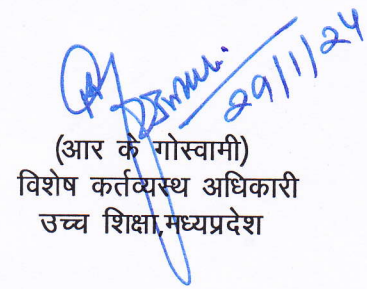 29/1/24
(आर के गोस्वामी)
विशेष कर्तव्यस्थ अधिकारी
उच्च शिक्षा,मध्यप्रदेश